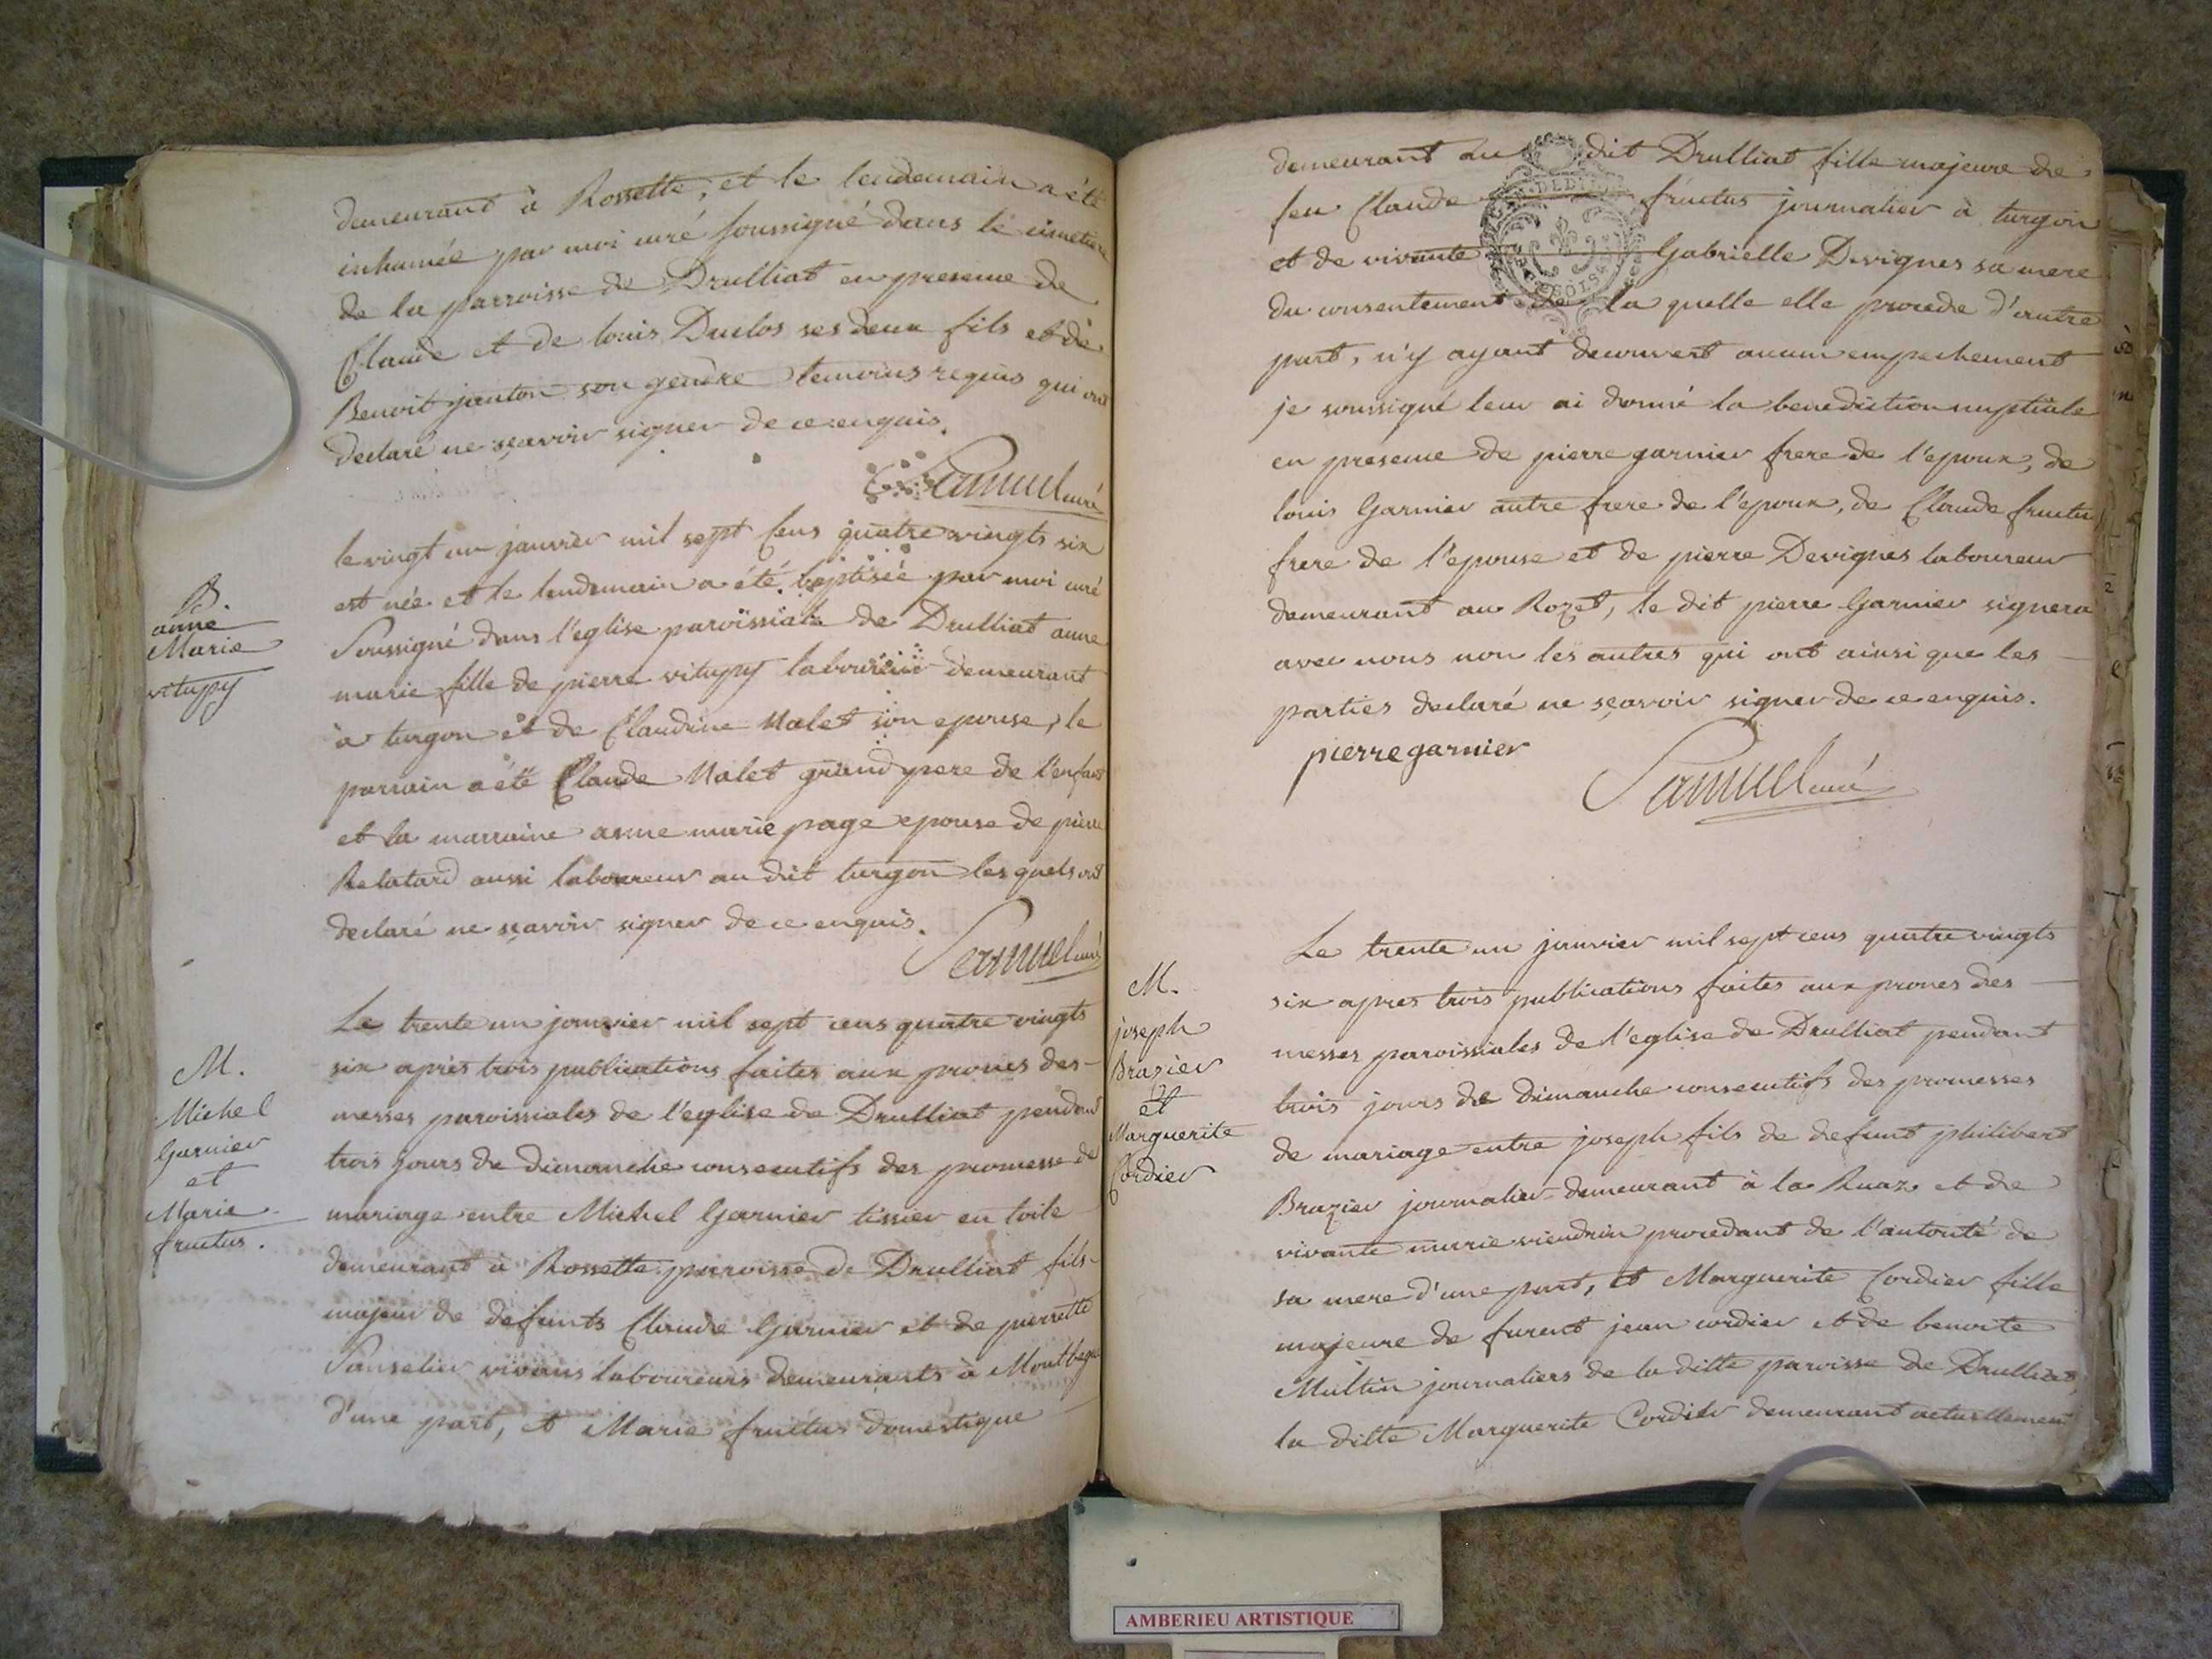 demeurant à Rossette, et le lendemain a été
inhumée par moi curé soussigné dans le cimetiere
de la parroisse de Drulliat en presence de
Claude et de louis Duclos ses deux fils et de
Benoit janton son gendre temoins requis qui ont
declaré ne sçavoir signer de ce enquis.
Samuel curé
B.
anne
Marie
vitupy
le vingt un janvier mil sept cens quatre vingts six
est née et le lendemain a été baptisée par moi curé
Soussigné dans l'eglise paroissiale de Drulliat anne
marie fille de pierre vitupy laboureur demeurant
à turgon et de Claudine Malet son epouse, le
parrain a été Claude Malet grand pere de l'enfant
et la marraine anne marie page epouse de pierre
Relatard aussi laboureur au dit turgon les quels ont
declaré ne sçavoir signer de ce enquis.
Samuel curé
M.
Michel
Garnier
et
Marie
fructus.
Le trente un janvier mil sept cens quatre vingts
six après trois publications faites aux prones des
messes paroissiales de l'eglise de Drulliat pendant
trois jours de dimanche consecutifs des promesse de
mariage entre Michel Garnier tissier en toile
demeurant à Rossette paroisse de Drulliat fils
majeur de defunts Claude Garnier et de pierrette
vivans laboureurs demeurants à
d'une part, et Marie fructus domestique
demeurant au dit Drulliat fille majeure de
feu Claude fructus journalier à turgon
et de vivante Gabrielle Devignes sa mere
du consentement de la quelle elle procede d'autre
part, n'y ayant decouvert aucun empechement
je soussigné leur ai donné la benediction nuptiale
en presence de pierre garnier frere de l'epoux, de
louis Garnier autre frere de l'epoux, de Claude fructus
frere de l'epouse et de pierre Devignes laboureur
demeurant au Rozet, le dit pierre Garnier signera
avec nous non les autres qui ont ainsi que les
parties declaré ne sçavoir signer de ce enquis.
pierre garnier
Samuel curé
M.
joseph
Brazier
et
Marguerite
Cordier
Le trente un janvier mil sept cens quatre vingts
six apres trois publications faites aux prones des
messes paroissiales de l'eglise de Drulliat pendant
trois jours de dimanche consecutifs des promesses
de mariage entre joseph fils de defunt philibert
Brazier journalier demeurant à la Ruaz et de
vivante marie viendrin procedant de l'autorité de
sa mere d'une part, et Marguerite Cordier fille
majeure de furent jean cordier et de benoite
Multin journaliers de la ditte paroisse de Drulliat,
la ditte Marguerite Cordier demeurant actuellement
AMBERIEU ARTISTIQUE